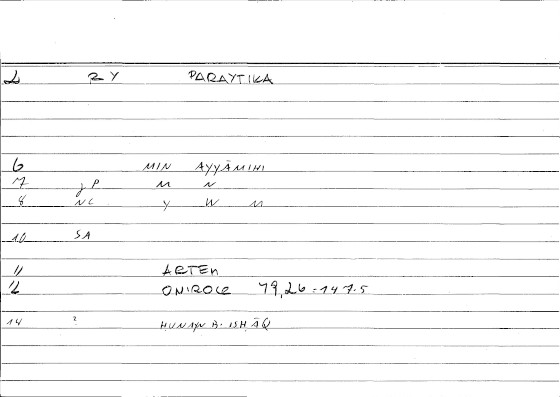 2 RY PARAYTIKA
6 MIN AYYĀMIHI
7 gP M N
8 NC Y W M
10 SA
11 ARTEM
12 ONIROCR 79,26 = 147.5
14 ? HUNAYN B. ISḤĀQ